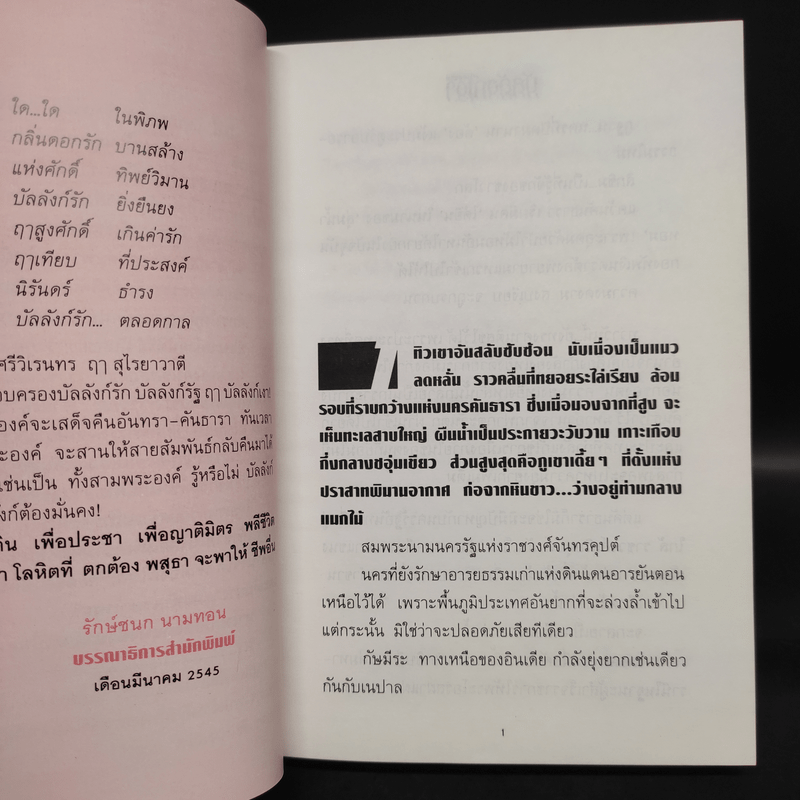 ใด...ใด ในพิภพ
กลิ่นดอกรัก บานสล้าง
แห่งศักดิ์ ทิพย์วิมาน
บัลลังก์รัก ยิ่งยืนยง
ฤๅสูงศักดิ์ เกินค่ารัก
ฤๅเทียบ ที่ประสงค์
นิรันดร์ ธำรง
บัลลังก์รัก... ตลอดกาล
ศรีวิเรนทร ฤๅ สุไรยาวาตี
อบครองบัลลังก์รัก บัลลังก์รัฐ ฤๅ บัลลังก์เงา!
องค์จะเสด็จคืนอันทรา-คันธารา ทันเวลา
ะองค์ จะสานให้สายสัมพันธ์กลับคืนมาได้
เช่นเป็น ทั้งสามพระองค์ รู้หรือไม่ บัลลังก์
งก์ต้องมั่นคง!
ดิน เพื่อประชา เพื่อญาติมิตร พลีชีวิต
า โลหิตที่ ตกต้อง พสุธา จะพาให้ ชีพอื่น
รักษ์ชนก นามทอน
บรรณาธิการสำนักพิมพ์
เดือนมีนาคม 2545
1 ทิวเขาอันสลับซับซ้อน นับเนื่องเป็นแนว
ลดหลั่น ราวคลื่นที่ทยอยระไล่เรียง ล้อม
รอบที่ราบกว้างแห่งนครคันธารา ซึ่งเมื่อมองจากที่สูง จะ
เห็นทะเลสาบใหญ่ ผืนน้ำเป็นประกายวะวับวาม เกาะเกือบ
กึ่งกลางชอุ่มเขียว ส่วนสูงสุดคือภูเขาเตี้ยๆ ที่ตั้งแห่ง
ปราสาทพิมานอากาศ ก่อจากหินขาว...ว่างอยู่ท่ามกลาง
แมกไม้
สมพระนามนครรัฐแห่งราชวงศ์จันทรคุปต์
นครที่ยังรักษาอารยธรรมเก่าแห่งดินแดนอารยันตอน
เหนือไว้ได้ เพราะพื้นภูมิประเทศอันยากที่จะล่วงล้ำเข้าไป
แต่กระนั้น มิใช่ว่าจะปลอดภัยเสียทีเดียว
กัษมีระ ทางเหนือของอินเดีย กำลังยุ่งยากเช่นเดียว
กันกับเนปาล
1